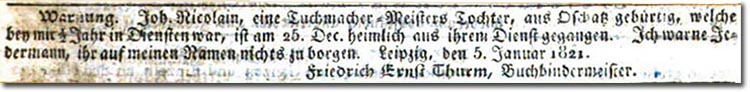 Warnung. Joh. Nicolain, eine Tuchmacher-Meisters Tochter, aus Oschatz gebürtig, welche
bey mir ½ Jahr in Diensten war, ist am 25. Dec. heimlich aus ihrem Dienst gegangen. Ich warne Je-
dermann, ihr auf meinen Namen nichts zu borgen. Leipzig, den 5. Januar 1821.
Friedrich Ernst Thurm, Buchbindermeister.